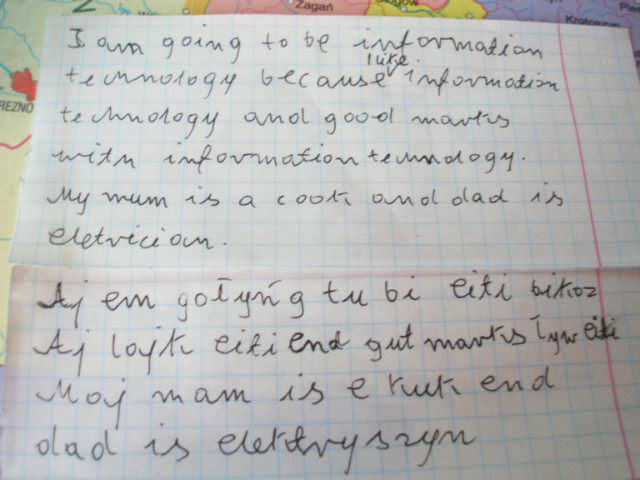 Żagań
Głogów
Krotoszyn
REZNO
I am going to be information
like
technology because information
technology and good marks
with information technology.
My mum is a cook and dad is
eletrician.
Aj em gołyńg tu bi eiti bikoz
Aj lojk eiti end gut marks ływ eiti
Moj mam is e kuk end
dad is elektryszyn